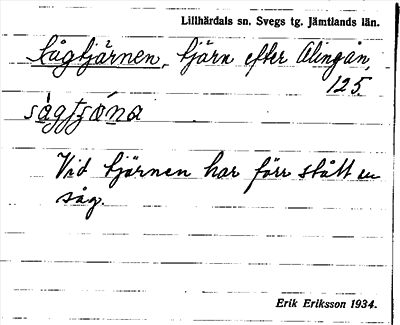 Lillhärdals sn. Svegs tg. Jämtlands län.
Sågtjärnen, tjärn efter Alingån,
125.
sågtjǫ́na
Vid tjärnen har förr stått en
såg.
Erik Eriksson 1934.